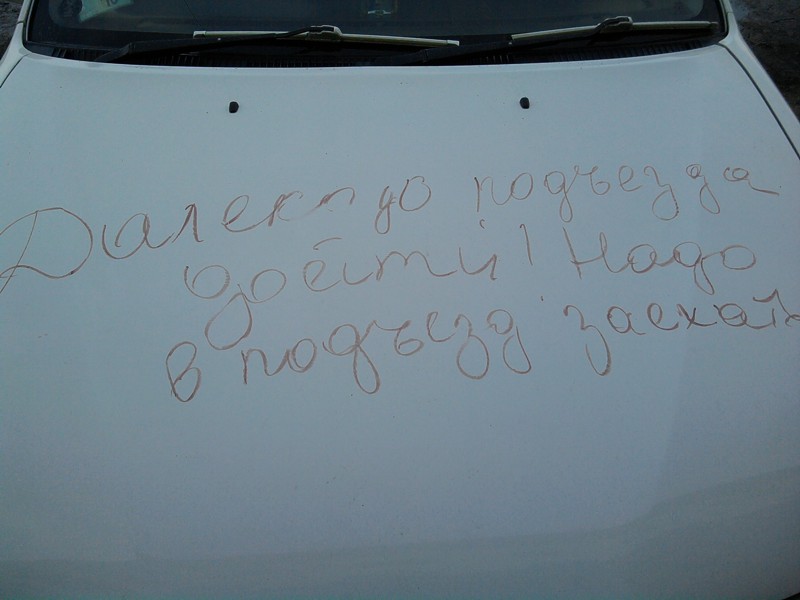 Далеко до подъезда
дойти! Надо
в подъезд заехать